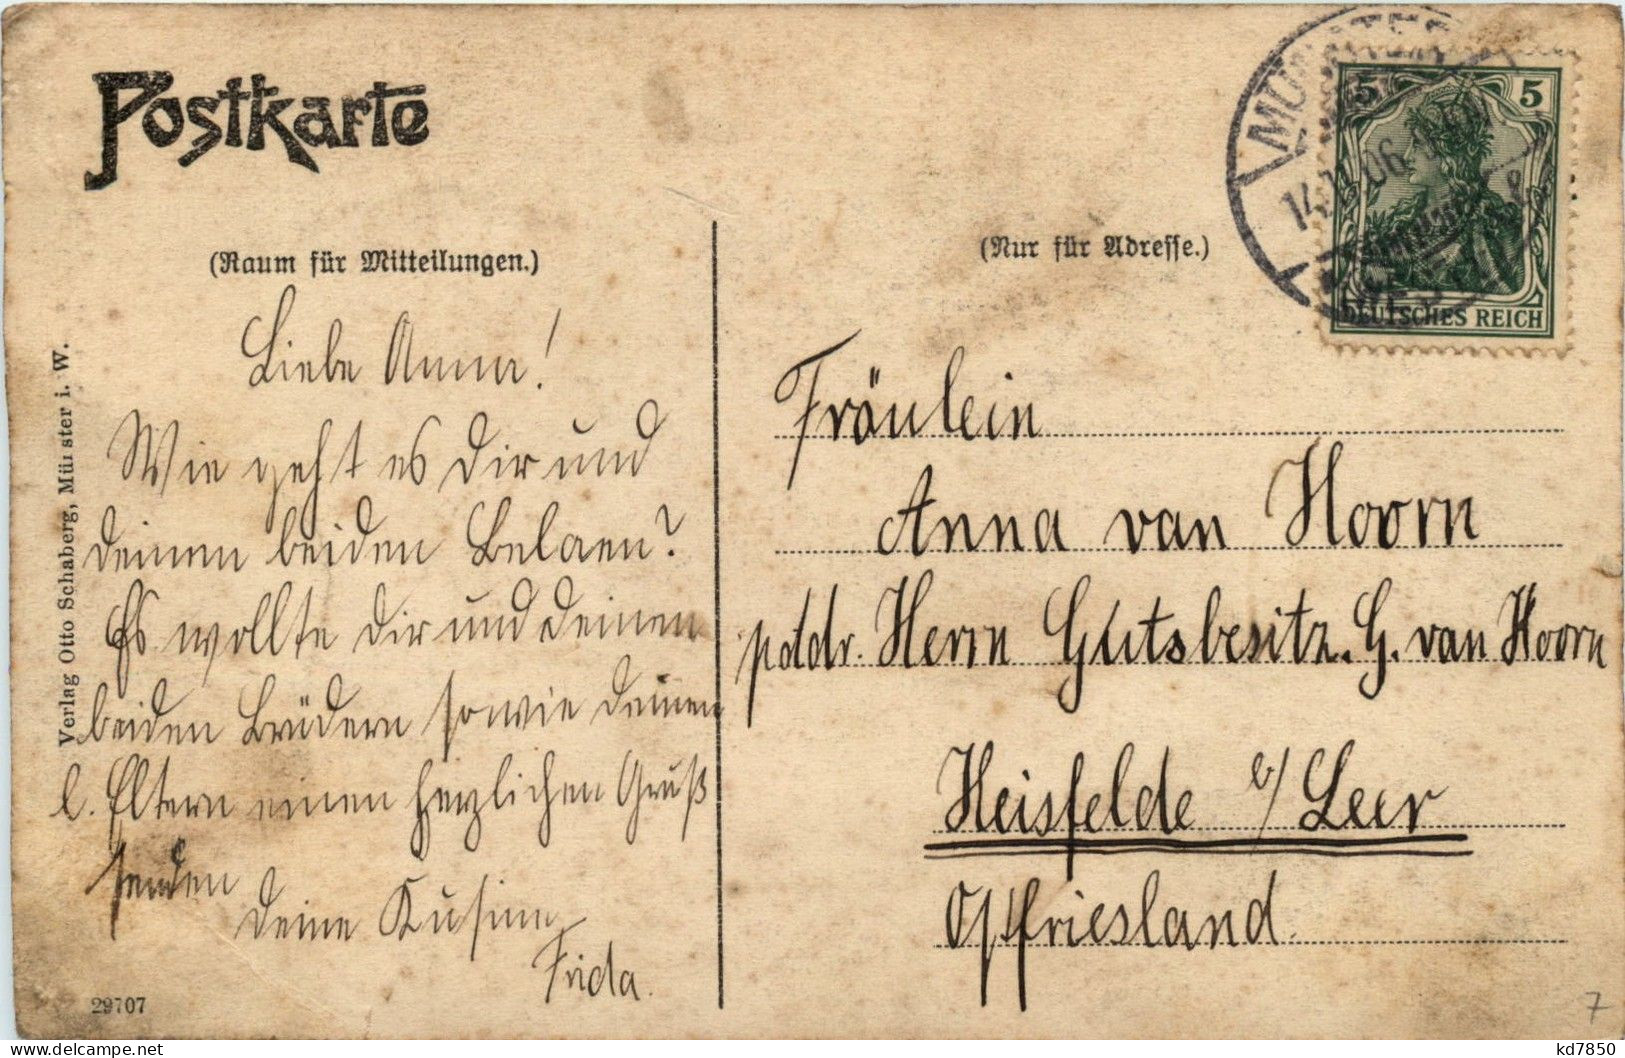 Postkarte
(Raum für Mitteilungen.)
Liebe Anna!
Wie geht es Dir und
deinen beiden
Es wollte Dir und Deinen
beiden Brüdern sowie Deinen
l. Eltern einen herzlichen Gruß
senden
Deine Kusine
Frida.
Verlag Otto Schaberg, Münster i. W.
29707
(Nur für Adresse.)
5 5
DEUTSCHES REICH
14. 06.
Fräulein
Anna van Hoorn
Herrn Gutsbesitz. G. van Hoorn
Heisfelde b/ Leer
Ostfriesland.
7
kd7850